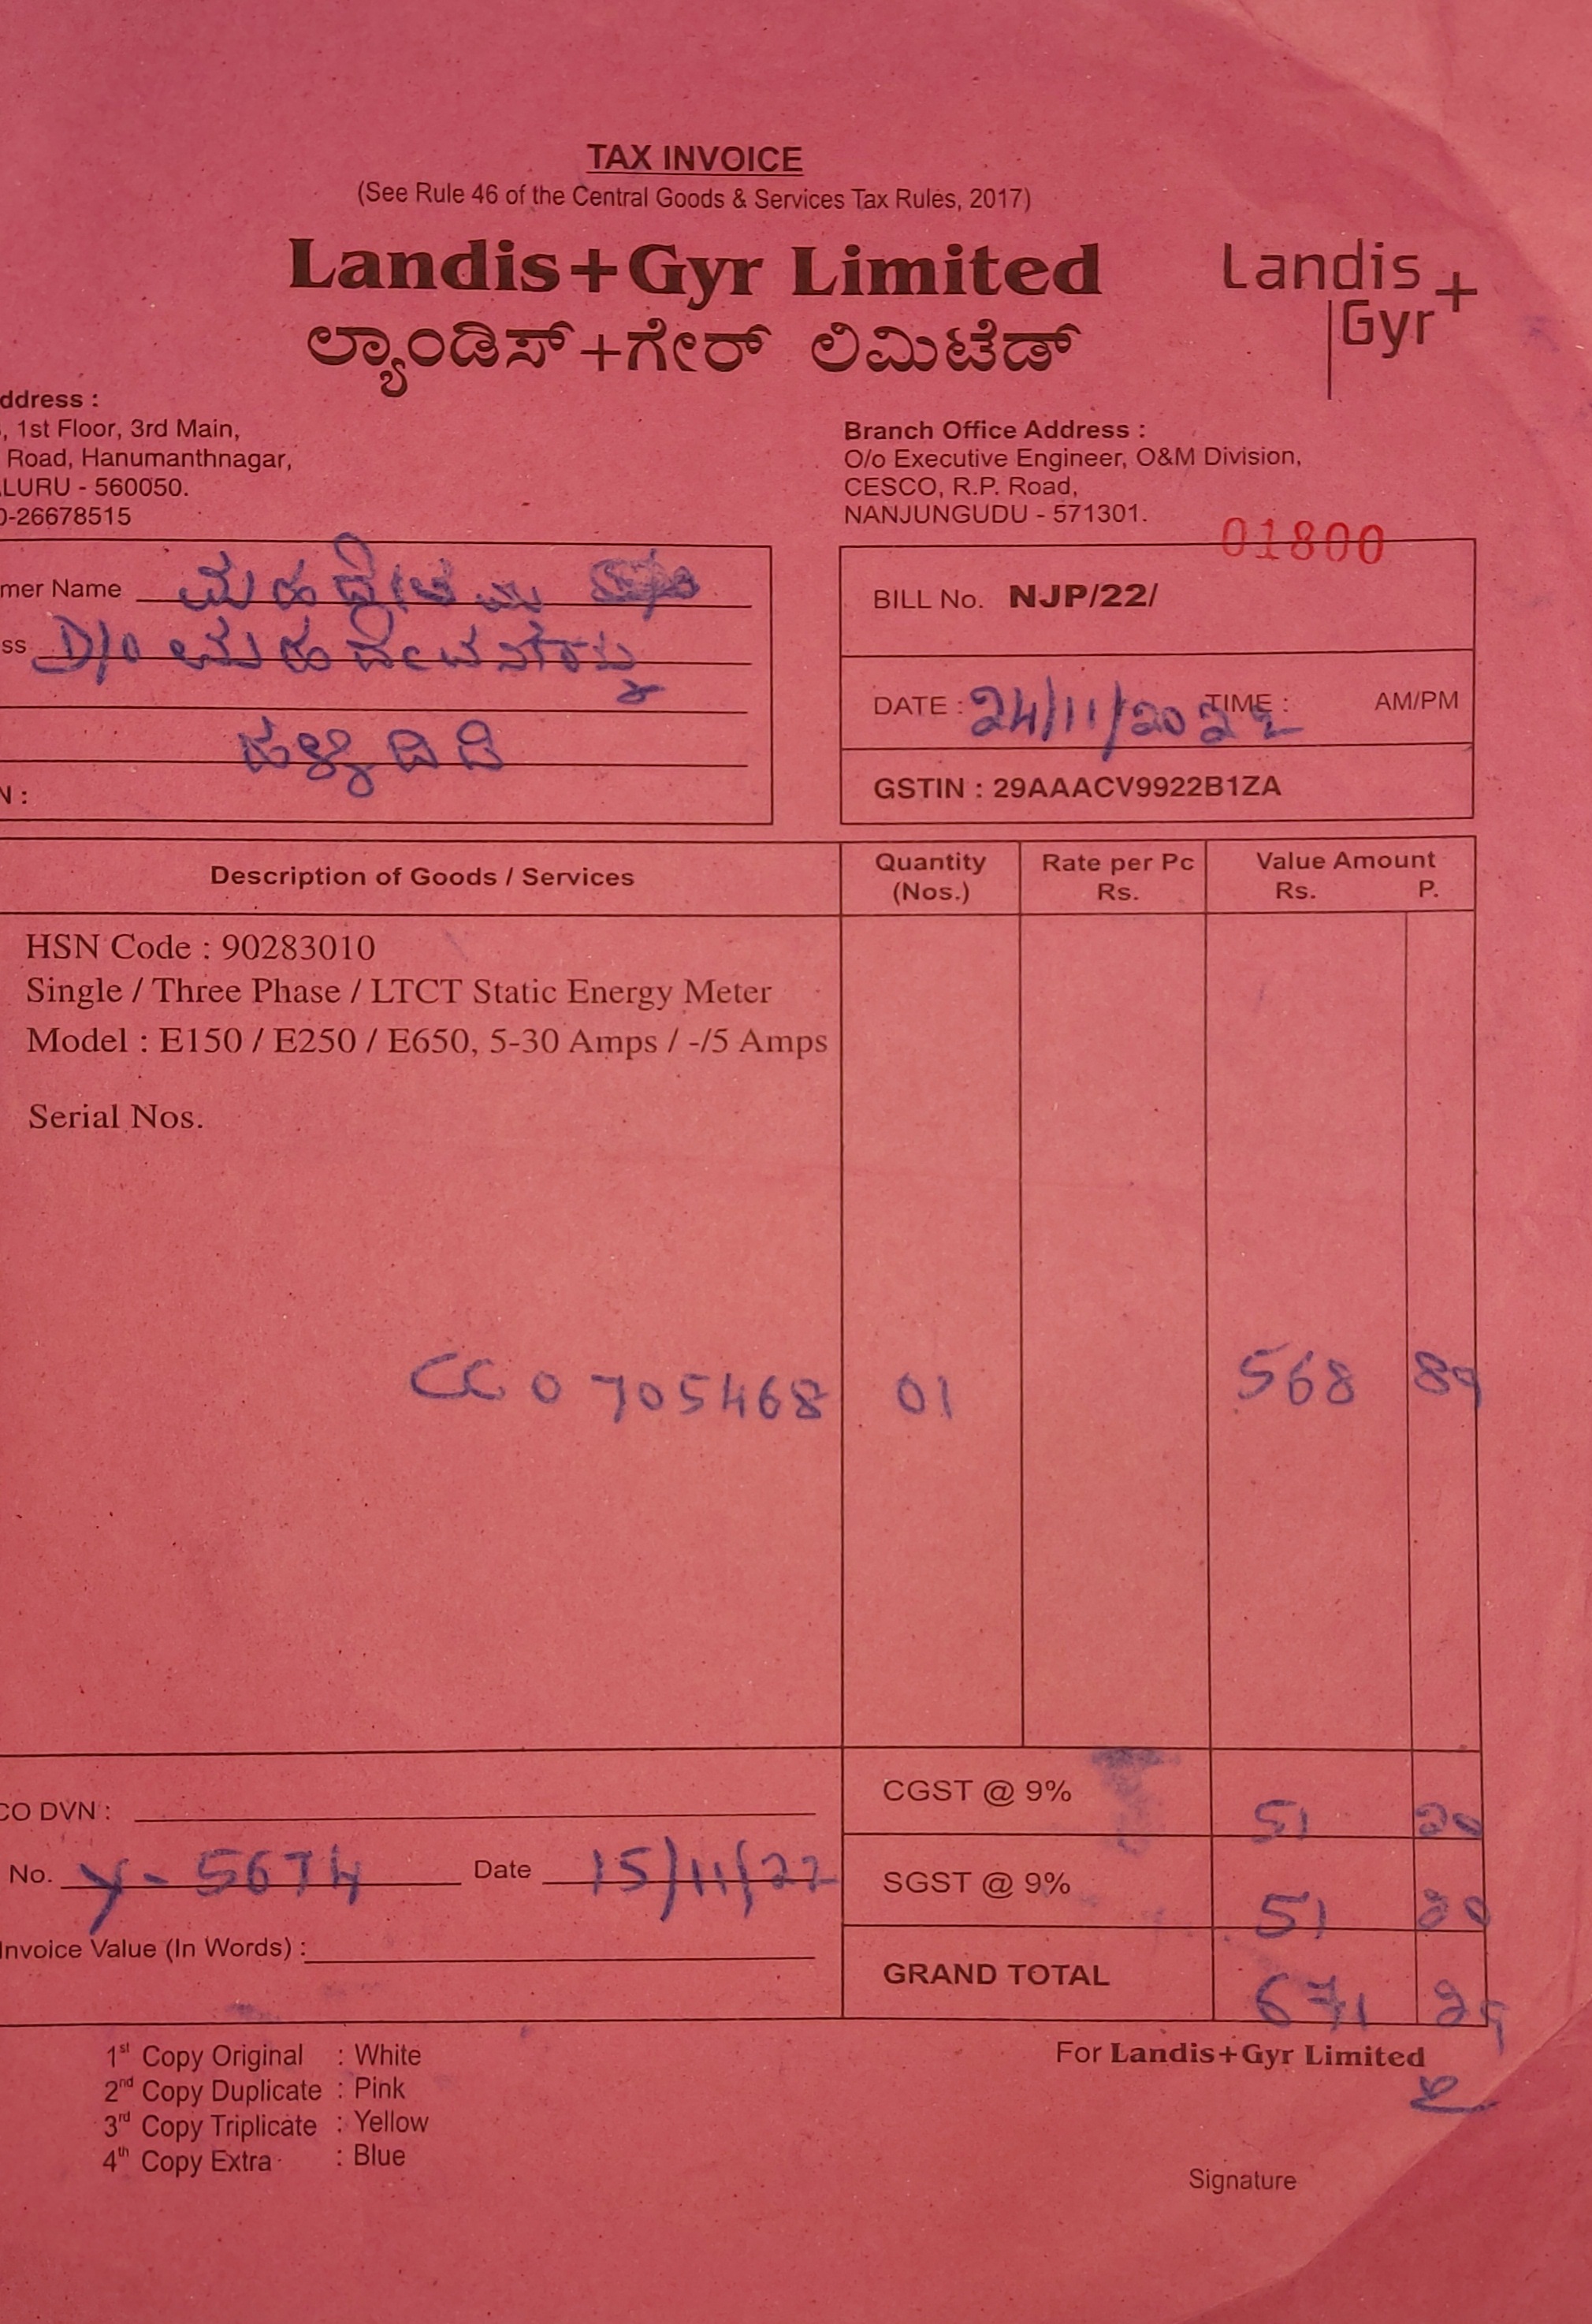 TAX INVOICE
(See Rule 46 of the Central Goods & Services Tax Rules, 2017)
Landis+Gyr Limited
ಲ್ಯಾಂಡಿಸ್+ಗೇರ್ ಲಿಮಿಟೆಡ್
Landis+
Gyr
ddress :
, 1st Floor, 3rd Main,
Road, Hanumanthnagar,
LURU - 560050.
0-26678515
Branch Office Address :
O/o Executive Engineer, O&M Division,
CESCO, R.P. Road,
NANJUNGUDU - 571301.
01800
mer Name
ss D/o
N :
BILL No. NJP/22/
DATE : 24/11/2022 TIME : AM/PM
GSTIN : 29AAACV9922B1ZA
Description of Goods / Services Quantity (Nos.) Rate per Pc Rs. Value Amount Rs. P.
HSN Code : 90283010
Single / Three Phase / LTCT Static Energy Meter
Model : E150 / E250 / E650, 5-30 Amps / -/5 Amps
Serial Nos.
CC0705468 01 568 89
CO DVN :
No. Y-5674 Date 15/11/22
Invoice Value (In Words) :
CGST @ 9% 51 20
SGST @ 9% 51 20
GRAND TOTAL 671 29
1st Copy Original : White
2nd Copy Duplicate : Pink
3rd Copy Triplicate : Yellow
4th Copy Extra : Blue
For Landis+Gyr Limited
Signature